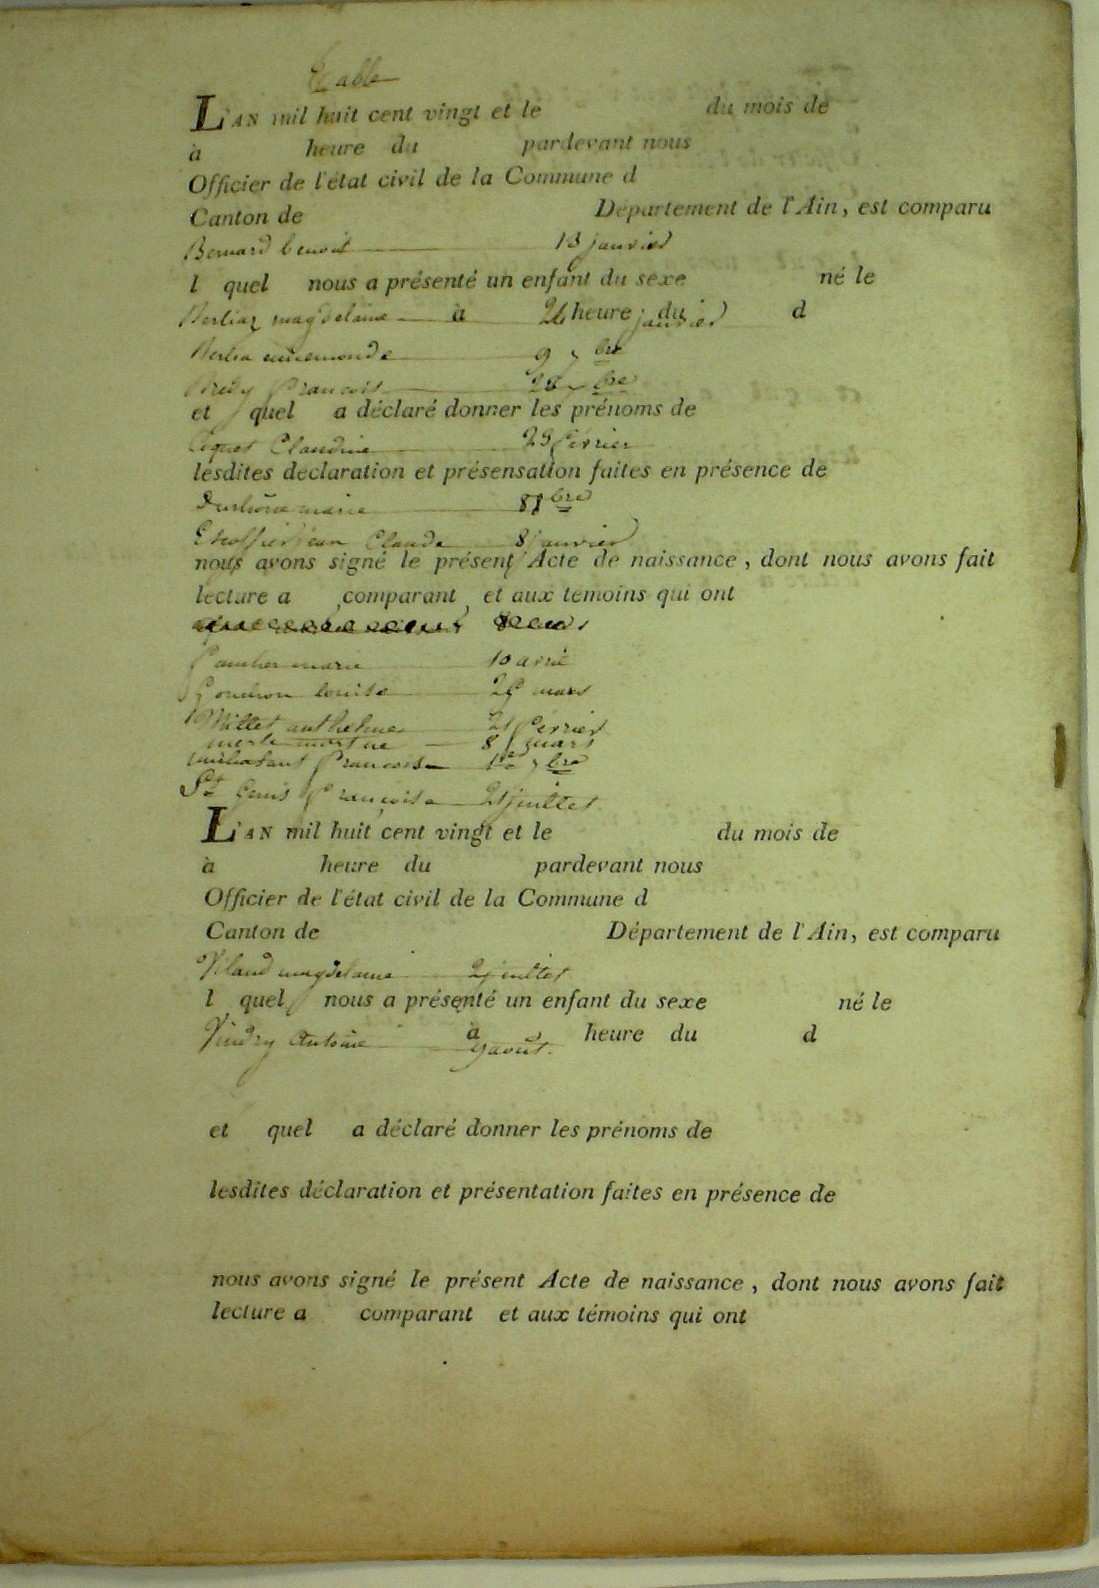 Table
L'AN mil huit cent vingt et le du mois de
à heure du pardevant nous
Officier de l'état civil de la Commune d
Canton de Département de l'Ain, est comparu
Bernard benoit 13 janvier
l quel nous a présenté un enfant du sexe né le
Berliaz magdelaine 26 janvier
à heure du d
Berlia annemonde 9 7bre
Bredy francois 28 7bre
et quel a déclaré donner les prénoms de
Claudine 25 février
lesdites declaration et présensation faites en présence de
marie 8bre
jean Claude 8 janvier
nous avons signé le présent Acte de naissance, dont nous avons fait
lecture a comparant et aux temoins qui ont
marie 10 avril
Gondron louise 25 mars
Millet anthelme 21 février
mort né 8 mars
francoise 1er 7bre
St Genis françoise 21 juillet
L'AN mil huit cent vingt et le du mois de
à heure du pardevant nous
Officier de l'état civil de la Commune d
Canton de Département de l'Ain, est comparu
magdelaine 2 juillet
l quel nous a présenté un enfant du sexe né le
à heure du d
Vindry Antoine 9 août.
et quel a déclaré donner les prénoms de
lesdites déclaration et présentation faites en présence de
nous avons signé le présent Acte de naissance, dont nous avons fait
lecture a comparant et aux témoins qui ont